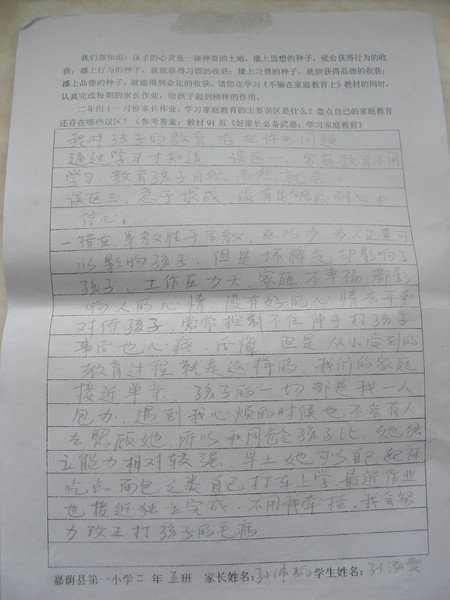 我们都知道：孩子的心灵是一块神奇的土地，播上思想的种子，就会获得行为的收
获；播上行为的种子，就能获得习惯的收获；播上习惯的种子，就能获得品德的收获；
播上品德的种子，就能得到命运的收获。请您在学习《不输在家庭教育上》教材的同时，
认真完成每期的家长作业，给孩子起到榜样的作用。
二年级十一月份家长作业：学习家庭教育的主要误区是什么？盘点自己的家庭教育
还存在哪些误区？（参考答案：教材91页《好家长必备武器：学习家庭教育》
我对孩子的教育存在许多问题
通过学习才知道 误区一 家庭教育不用
学习，教育孩子自然而然就会
误区三，急于求成，没有足够的耐心和
信心。
一错在，身教胜于言教，总以为，为人还真可
以影响孩子，但是坏脾气却影响了
孩子，工作压力大，家庭不幸福，都影
响人的心情，没有好的心情去平和
对待孩子，常常控制不住伸手打孩子
事后也心疼，后悔，但是从小受到的
教育过程就是这样的，我们的家庭
接近单亲，孩子的一切都是我一人
包办，遇到我心烦的时候也不会有人
去照顾她，所以和同龄孩子比，她独
立能力相对较强，早上她可以自己起床
吃点面包之类自己打车上学，最近作业
也接近独立完成，不用我牵挂，我会努
力改正打孩子的毛病
嘉荫县第一小学二年五班 家长姓名：孙 学生姓名：孙泓雯